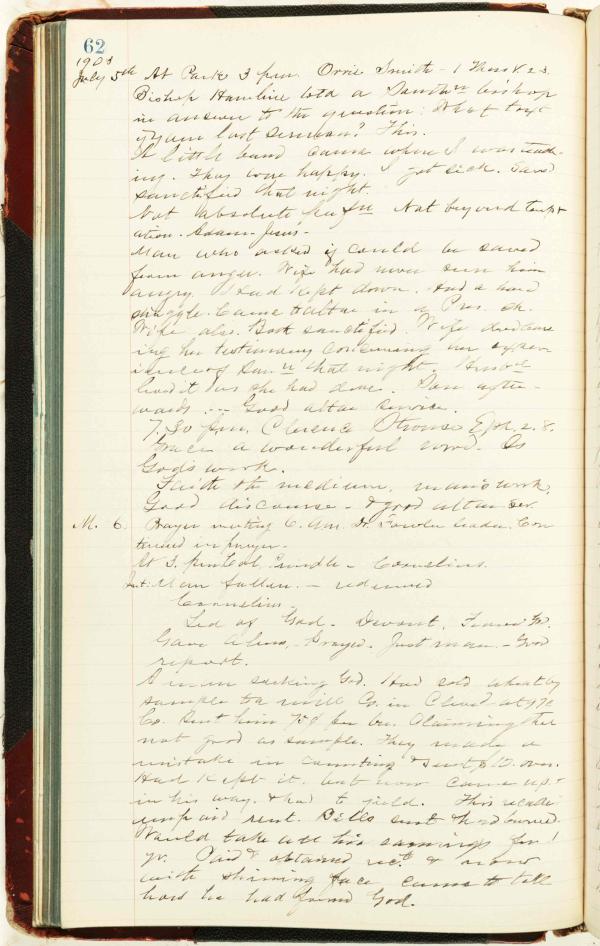 62
1903
July 5th At Park 3 p.m. Orrie Smith - 1 Thes V. 23.
Bishop Hamline told a bishop
in answer to the question: What text
your last sermon? This.
A little band came where I was
ing. They were happy. I got sick. Saved
sanctified that night.
Not absolute Not beyond tempt
ation. Adam - Jesus -
Man who asked if could be saved
from anger. Wife had never seen him
angry. Had kept down. Had a hard
struggle. Came to altar in a Pres. ch.
Wife also. Both sanctified. Wife
ing her testimony concerning her exper
ience of San that night.
lived it as she had done. after-
wards - Good altar service.
7.30 p.m. Clarence Strouse Eph. 2. 8.
Grace a wonderful word. Is
God's work.
Faith the medium, man's work.
Good discourse - & good altar ser.
M. 6. Prayer meeting 6. a.m. Dr. Fowler leader. Con
tinued in prayer.
At 3. p.m. - Cornelius.
Man fallen. - redeemed
Cornelius -
Led of God. Devout, Feared
Gave alms, - Prayed. Just man - Good
report.
A man seeking God. Had sold wheat by
sample to a mill Co. in Cleved. at 97¢
Co. sent him 75¢ per bu. claiming
not good as sample. They made a
mistake in counting & sent over.
Had kept it. but now came up
in his way. & had to yield. This
up and sent. Bills sent
Would take all his earnings for 1
yr. Paid & obtained rect. & now
with shining face came to tell
how he had found God.